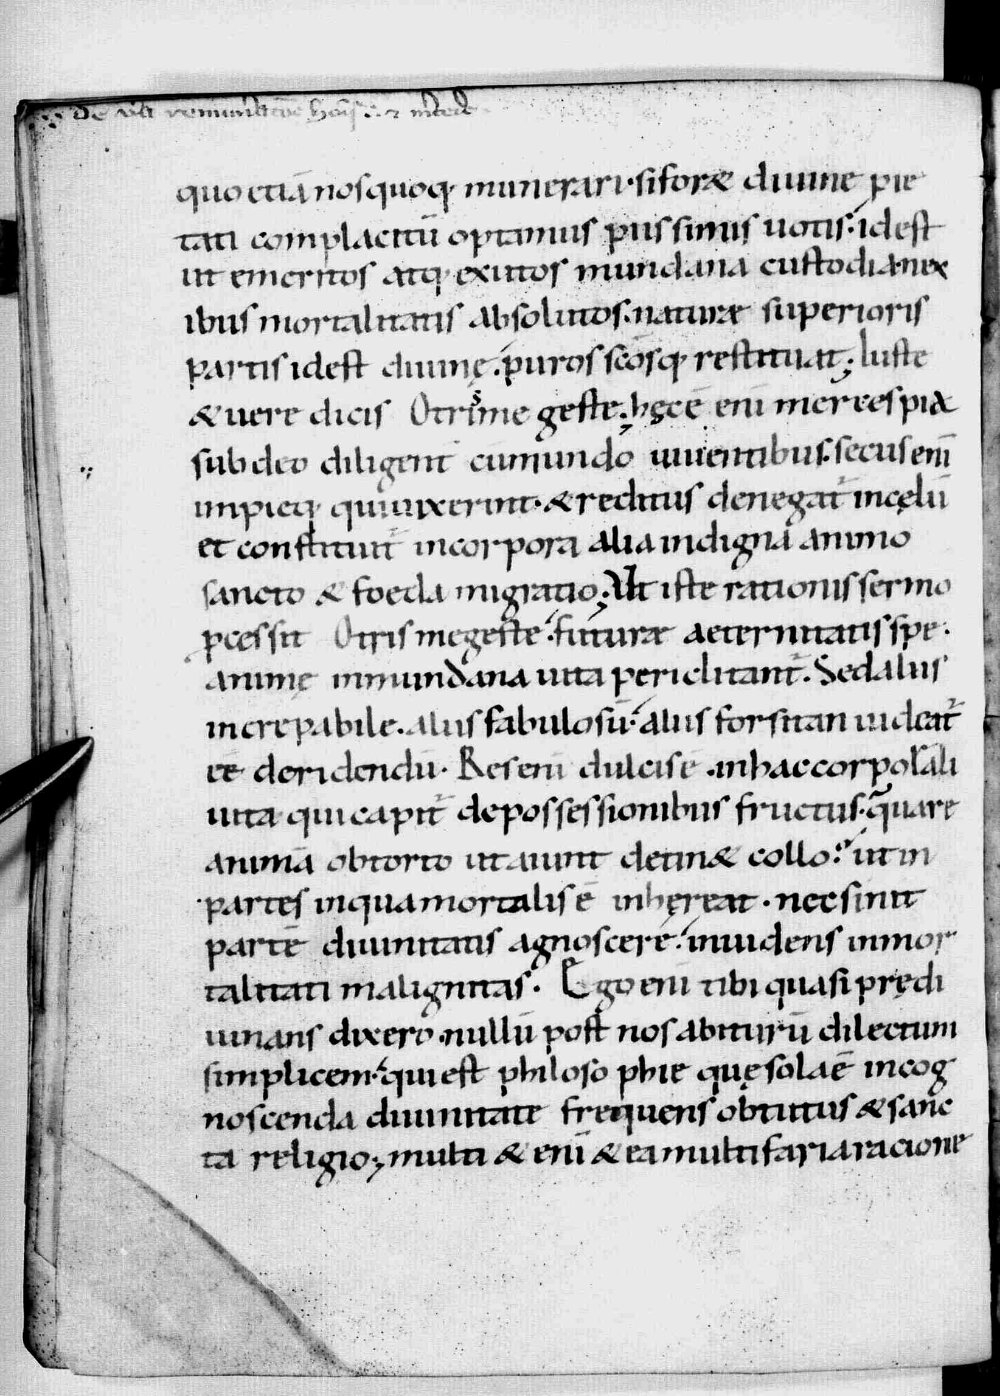 De vera remuneratōe hoīs: & mercede
quo etiā nos quoq; munerari· si foræ diuine pie
tati complacitū optamus piissimis uotis· id est
ut emeritos atq; exutos mundana custodia nex
ibus mortalitatis absolutos· naturæ superioris
partis id est diuinę· puros scōsq; restituat; Iuste
& uere dicis O trisme geste; hęc ē enī mercees pia
sub deo diligent cū mundo uiuentibus· secus enī
impieq; qui uixerint· & reditus denegat̄ in cęlū
et constituit̄ in corpora alia indigna animo
sancto & foeda migratio; Ut iste rationis sermo
ꝓcessit O trismegeste· futuræ aeternitatis spe·
animę in mundana uita periclitant̄. Sed aliis
increpabile· aliis fabulosū· aliis forsitan uideat̄
eē deridendū· Res enī dulcis ē· in hac corporali
uita qui capit̄ de possessionibus fructus· quare
animā obtorto ut aiunt detinæ collo· ut in
partes in qua mortalis ē inhęreat· nec sinit
partē diuinitatis agnoscere· inuidens inmor
talitati malignitas· Ego enī tibi quasi prędi
uinans dixero· nullū post nos abiturū dilectum
simplicem· qui est philosophie quę sola ē in cog
noscenda diuinitate frequens obtutus & sanc
ta religio; multi & enī & ea multifaria racione